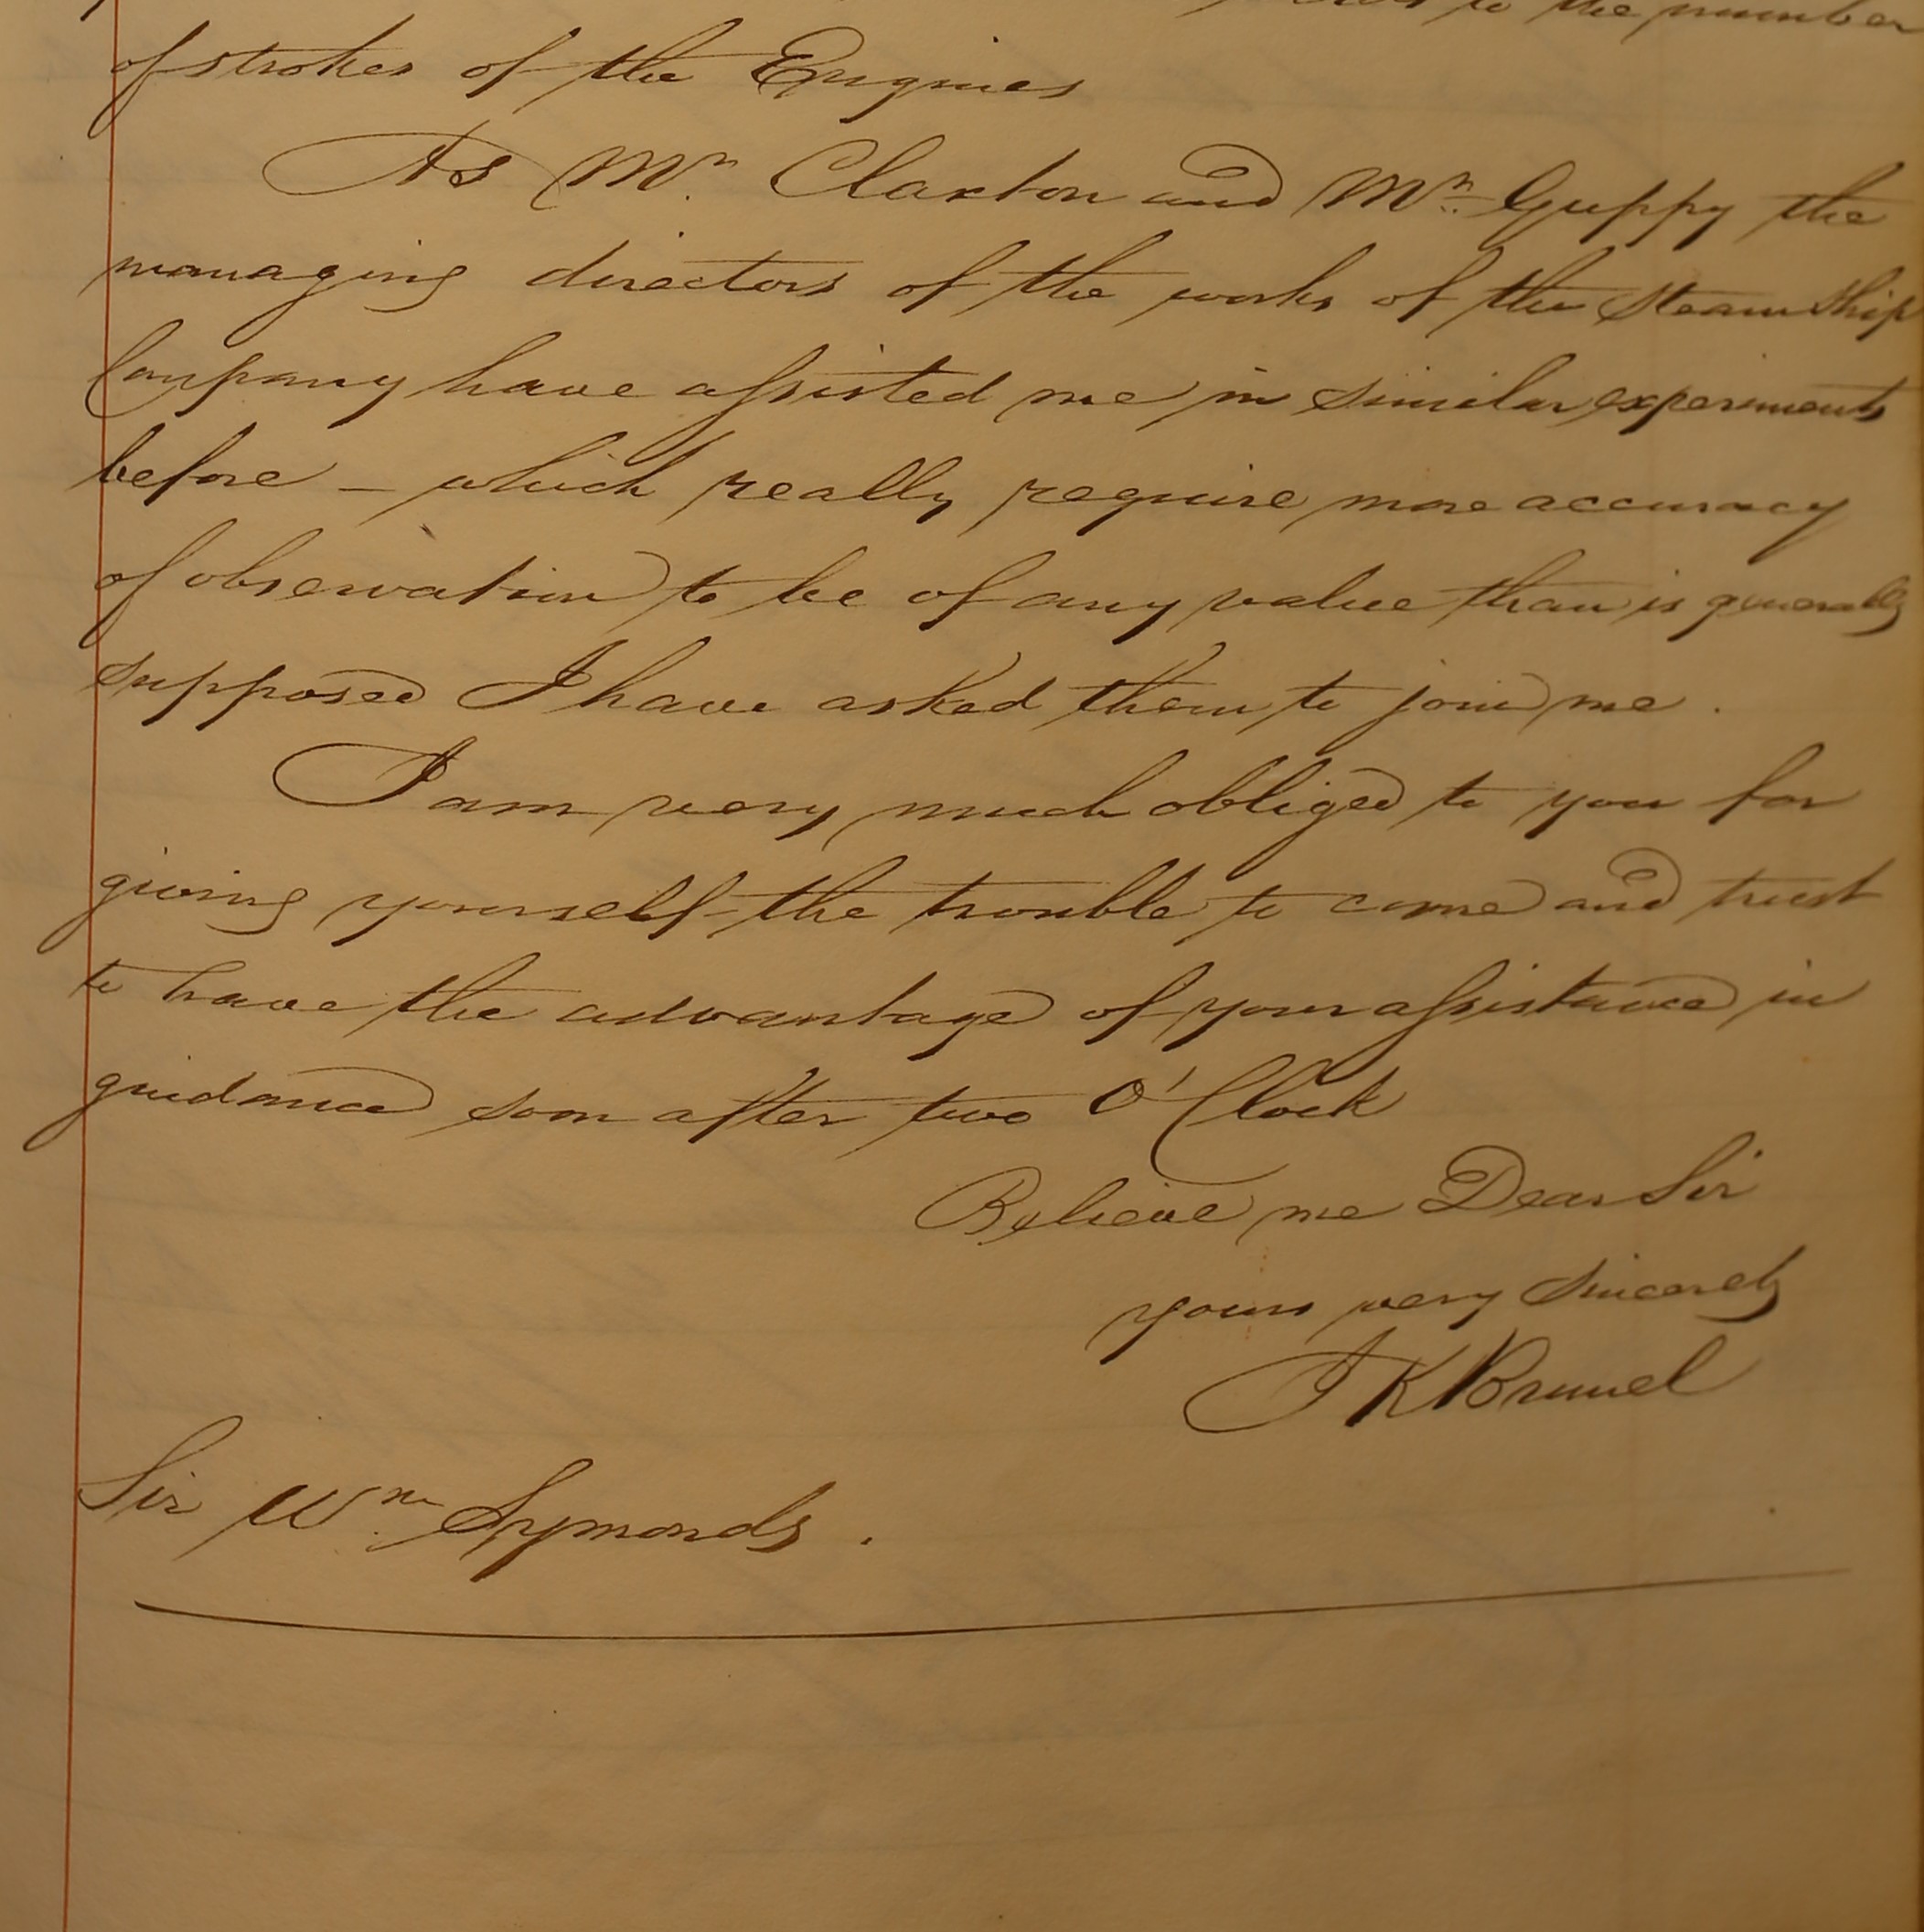 to the number
of strokes of the Engines
As Mr. Claxton and Mr. Guppy the
managing directors of the works of the Steam Ship
Company have assisted me in similar experiments
before – which really require more accuracy
of observation to be of any value than is generally
supposed I have asked them to join me.
I am very much obliged to you for
giving yourself the trouble to come and trust
to have the advantage of your assistance in
guidance soon after two O'Clock
Believe me Dear Sir
yours very sincerely
I K Brunel
Sir Wm. Symonds.